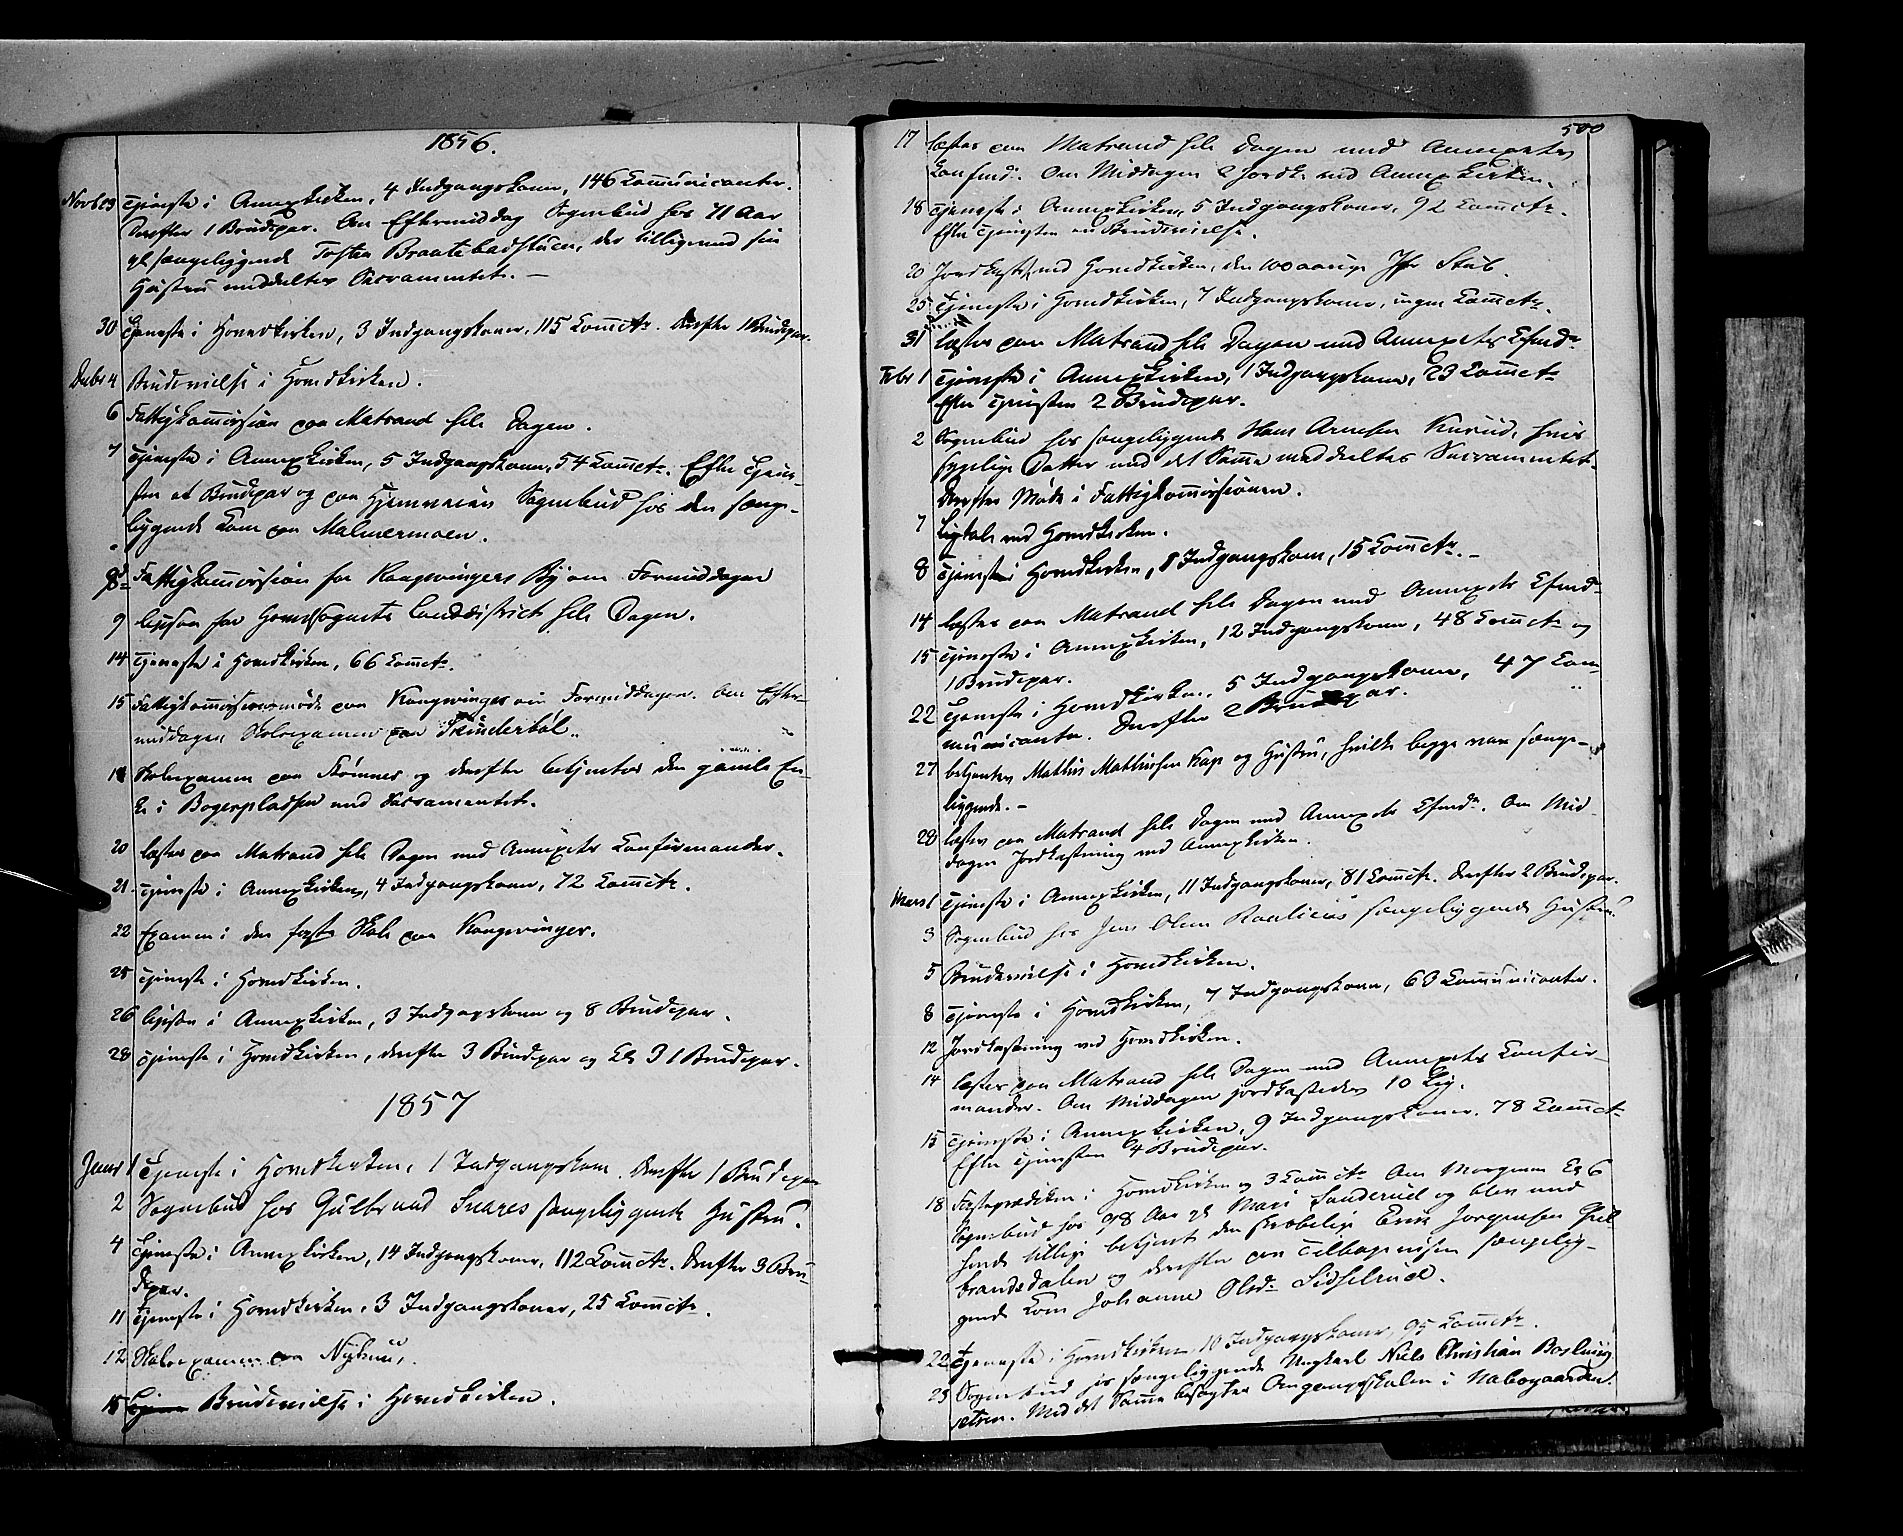 1856.
Novbr 23 Tjeneste i Annexkirken, 4 Indgangskoner, 146 Communicanter.
Derefter 1 Brudepar. Om Eftermiddag Sognebud hos 71 Aar
gl sengeliggende Torsten Braatebadstuen, der tilligemed sin
Hustru meddeltes Sacramentet. —
30 Tjeneste i Hovedkirken, 3 Indgangskoner, 115 Commctr. Derefter 1 Brudepar.
Decbr 4 Brudevielse i Hovedkirken.
6 Fattigkommission paa Matrand hele Dagen.
7 Tjeneste i Annexkirken, 5 Indgangskoner, 54 Commctr. Efter Tjene-
sten et Brudepar og paa Hjemveien Sognebud hos den senge-
liggende Kone paa Malmermoen.
8 Fattigkommission for Kongsvingers By om Formiddagen
9 ligesaa for Hovedsognets Landdistrict hele Dagen.
14 Tjeneste i Hovedkirken, 66 Commctr.
15 Fattigkommissionsmøde paa Kongsvinger om Formiddagen. Om Efter-
middagen Skoleexamen paa Skinderbøl.
Skoleexamen paa Skinnes og derefter betjentes den gamle En-
ke i Bogerpladsen med Sacramentet.
20 læstes paa Matrand hele Dagen med Annexets Confirmander.
21 Tjeneste i Annexkirken, 4 Indgangskoner, 72 Commctr.
22 Examen i den faste Skole paa Kongsvinger.
25 Tjeneste i Hovedkirken.
26 ligesaa i Annexkirken, 3 Indgangskoner og 8 Brudepar.
28 Tjeneste i Hovedkirken, derefter 3 Brudepar og Kl 3 1 Brudepar.
1857
Januar 1 Tjeneste i Hovedkirken, 1 Indgangskone. Derefter 1 Brudepar
2 Sognebud hos Gulbrand Snares sengeliggende Hustru.
4 Tjeneste i Annexkirken, 14 Indgangskoner, 112 Commctr. Derefter 3 Bru-
depar.
11 Tjeneste i Hovedkirken, 3 Indgangskoner, 25 Commctr.
12 Skoleexamen paa
15 Brudevielse i Hovedkirken.
500
17 læstes paa Matrand hele Dagen med Annexets
Confmd. Om Middagen 2 Jordk. ved Annexkirken.
18 Tjeneste i Annexkirken, 5 Indgangskoner, 92 Commctr.
Efter Tjenesten en Brudevielse.
20 Jordkast. ved Hovedkirken, den 100 aarige Jfr Stub.
25 Tjeneste i Hovedkirken, 7 Indgangskoner, ingen Commctr.
31 læstes paa Matrand hele Dagen med Annexets Cfmdr
Febr 1 Tjeneste i Annexkirken, 1 Indgangskone, 23 Commctr
Efter Tjenesten 2 Brudepar.
2 Sognebud hos sengeliggende Hans Arnesen Kurud, hvis
sygelige Datter med det Samme meddeltes Sacramentet.
Derefter Møde i Fattigkommissionen.
7 Ligtale ved Hovedkirken.
8 Tjeneste i Hovedkirken, 8 Indgangskoner, 15 Commctr. —
14 læstes paa Matrand hele Dagen med Annexets Cfmdr
15 Tjeneste i Annexkirken, 12 Indgangskoner, 48 Commctr og
1 Brudepar.
22 Tjeneste i Hovedkirken, 5 Indgangskoner, 47 Com-
municanter. Derefter 2 Brudepar.
27 betjentes Mathis Mathiesen Kap og Hustru, hvilke begge vare senge-
liggende. —
28 læstes paa Matrand hele Dagen med Annexets Cfmdr. Om Mid-
dagen Jordkastning ved Annexkirken.
Marts 1 Tjeneste i Annexkirken, 11 Indgangskoner, 81 Commctr. Derefter 2 Brudepar.
3 Sognebud hos Jens Olsen sengeliggende Hustru.
5 Brudevielse i Hovedkirken.
8 Tjeneste i Hovedkirken, 7 Indgangskoner, 63 Communicanter.
12 Jordkastning ved Hovedkirken.
14 læstes paa Matrand hele Dagen med Annexets Confir-
mander. Om Middagen jordkastedes 10 Lig.
15 Tjeneste i Annexkirken, 9 Indgangskoner, 78 Commctr
Efter Tjenesten 4 Brudepar.
18 Fasteprædiken i Hovedkirken og 3 Commctr Om Morgenen Kl 6
Sognebud hos 98 Aar gl Mari Sanderud og blev med
hende tillige betjent den skrøbelige Erik Jørgensen Gul
brandsdalen og derefter paa Tilbagereisen sengelig-
gende Kone Johanne Olsdr Sidselrud.
22 Tjeneste i Hovedkirken, 10 Indgangskoner, 95 Commctr.
23 Sognebud hos sengeliggende Ungkarl Niels Christian Boslung
sætren. Med det Samme besøgtes Omgangsskolen i Nabogaarden.